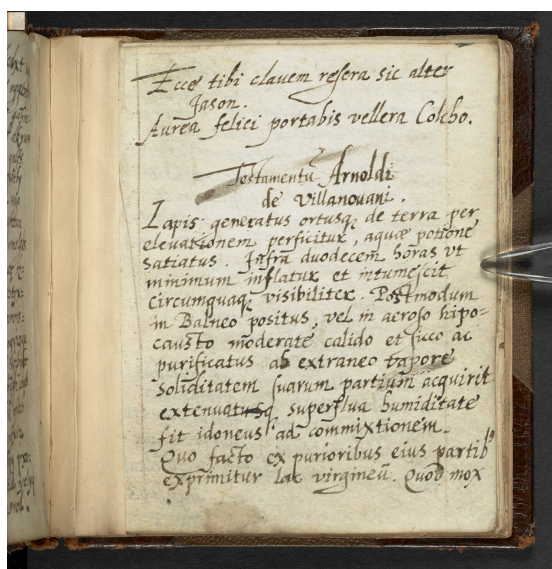 Ecce tibi clauem resera sic alter
Jason.
Aurea felici portabis vellera Colcho.
Testamentũ Arnoldi
de Villanouani.
Lapis generatus ortusq; de terra per
elevationem perficitur, aquæ potione
satiatus. Infra duodecem horas vt
minimum inflatur et intumescit
circumquaq; visibiliter. Postmodum
in Balneo positus, vel in aeroso hipo=
causto moderate calido et sicco ac
purificatus ab extraneo vapore
soliditatem suarum partium acquirit
superflua humiditate
fit idoneus ad commixtionem.
Quo facto ex purioribus eius partib9
exprimitur lac virgineũ. Quod mox